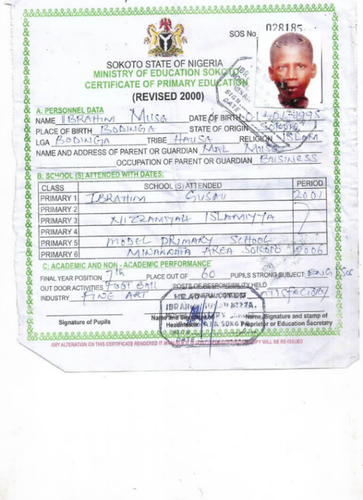 SOS No 028185
SOKOTO STATE OF NIGERIA
MINISTRY OF EDUCATION SOKOTO
CERTIFICATE OF PRIMARY EDUCATION
(REVISED 2000)
A. PERSONNEL DATA
NAME IBRAHIM MUSA DATE OF BIRTH
PLACE OF BIRTH BODINGA STATE OF ORIGIN SOKOTO
LGA BODINGA TRIBE HAUSA RELIGION ISLAM
NAME AND ADDRESS OF PARENT OR GUARDIAN MAL MUSA
OCCUPATION OF PARENT OR GUARDIAN BUISINESS
B. SCHOOL(S) ATTENDED WITH DATES:
CLASS SCHOOL(S) ATTENDED PERIOD
PRIMARY 1 IBRAHIM GUSAU 2001
PRIMARY 2
PRIMARY 3 NIZZAMIYAH ISLAMIYYA
PRIMARY 4
PRIMARY 5 MODEL PRIMARY SCHOOL
PRIMARY 6 AREA SOKOTO 2006
C: ACADEMIC AND NON - ACADEMIC PERFORMANCE
FINAL YEAR POSITION 7th PLACE OUT OF 60 PUPILS STRONG SUBJECT
OUT DOOR ACTIVITIES FOOT BALL POSTS OF RESPONSIBILITY HELD
INDUSTRY FINE ART SATISFACTORY
Signature of Pupils Name and Signature of Name, Signature and stamp of
Headmaster Proprietor or Education Secretary
ANY ALTERATION ON THIS CERTIFICATE RENDERED IT WILL BE RE-ISSUED